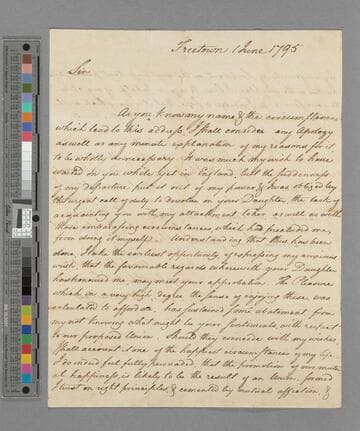 Freetown 1 June 1795
Sir
As you know my name & the circumstances
which lead to this address, I shall consider any Apology
as well as any minute explanation of my reasons for it,
to be wholly unnecessary. It was much my wish to have
waited on you while yet in England, but the suddenness
of my departure put it out of my power, & I was obliged by
this urgent call of duty to devolve on your Daughter, the task of
acquainting you with my attachment to her as well as with
those embarrassing circumstances which had precluded me
from doing it myself. Understanding that this has been
done, I take the earliest opportunity of expressing my anxious
wish that the favourable regards wherewith your Daughter
has honoured me, may meet your approbation. The Pleasure
which in a very high degree the sense of enjoying these, was
calculated to afford me, has sustained some abatement from
my not knowing what might be your sentiments with respect
to our proposed Union. Should they coincide with my wishes
I shall account it one of the happiest circumstances of my life.
I indeed feel fully persuaded, that the promotion of our mutu
al happiness, is likely to be the result of an Union, formed
I trust on right principles, & cemented by mutual affection, &